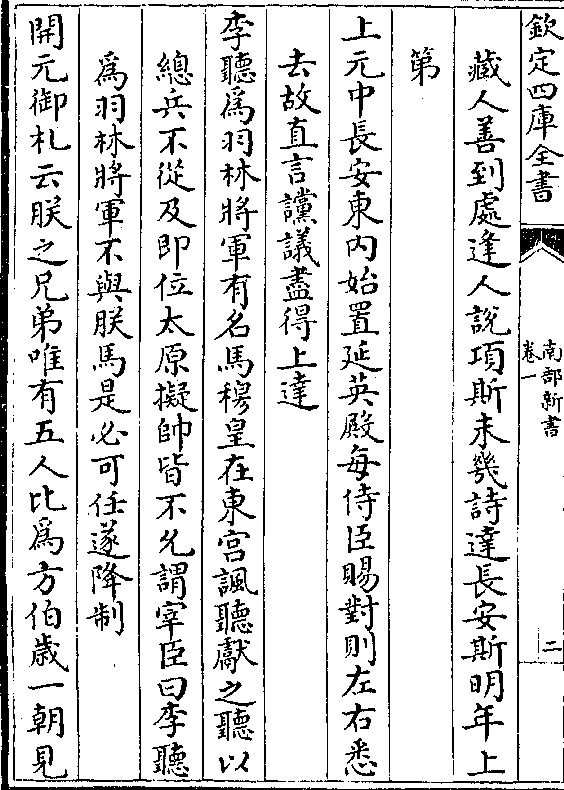 欽定四庫全書
南部新書
卷一
二
藏人善到處逢人説項斯未㡬詩達長安斯明年上
第
上元中長安東内始置延英殿每侍臣賜對則左右悉
去故直言讜議盡得上達
李聽為羽林將軍有名馬穆皇在東宫諷聽獻之聽以
總兵不從及即位太原擬帥皆不允謂宰臣曰李聽
為羽林將軍不與朕馬是必可任遂降制
開元御札云朕之兄弟唯有五人比為方伯歳一朝見